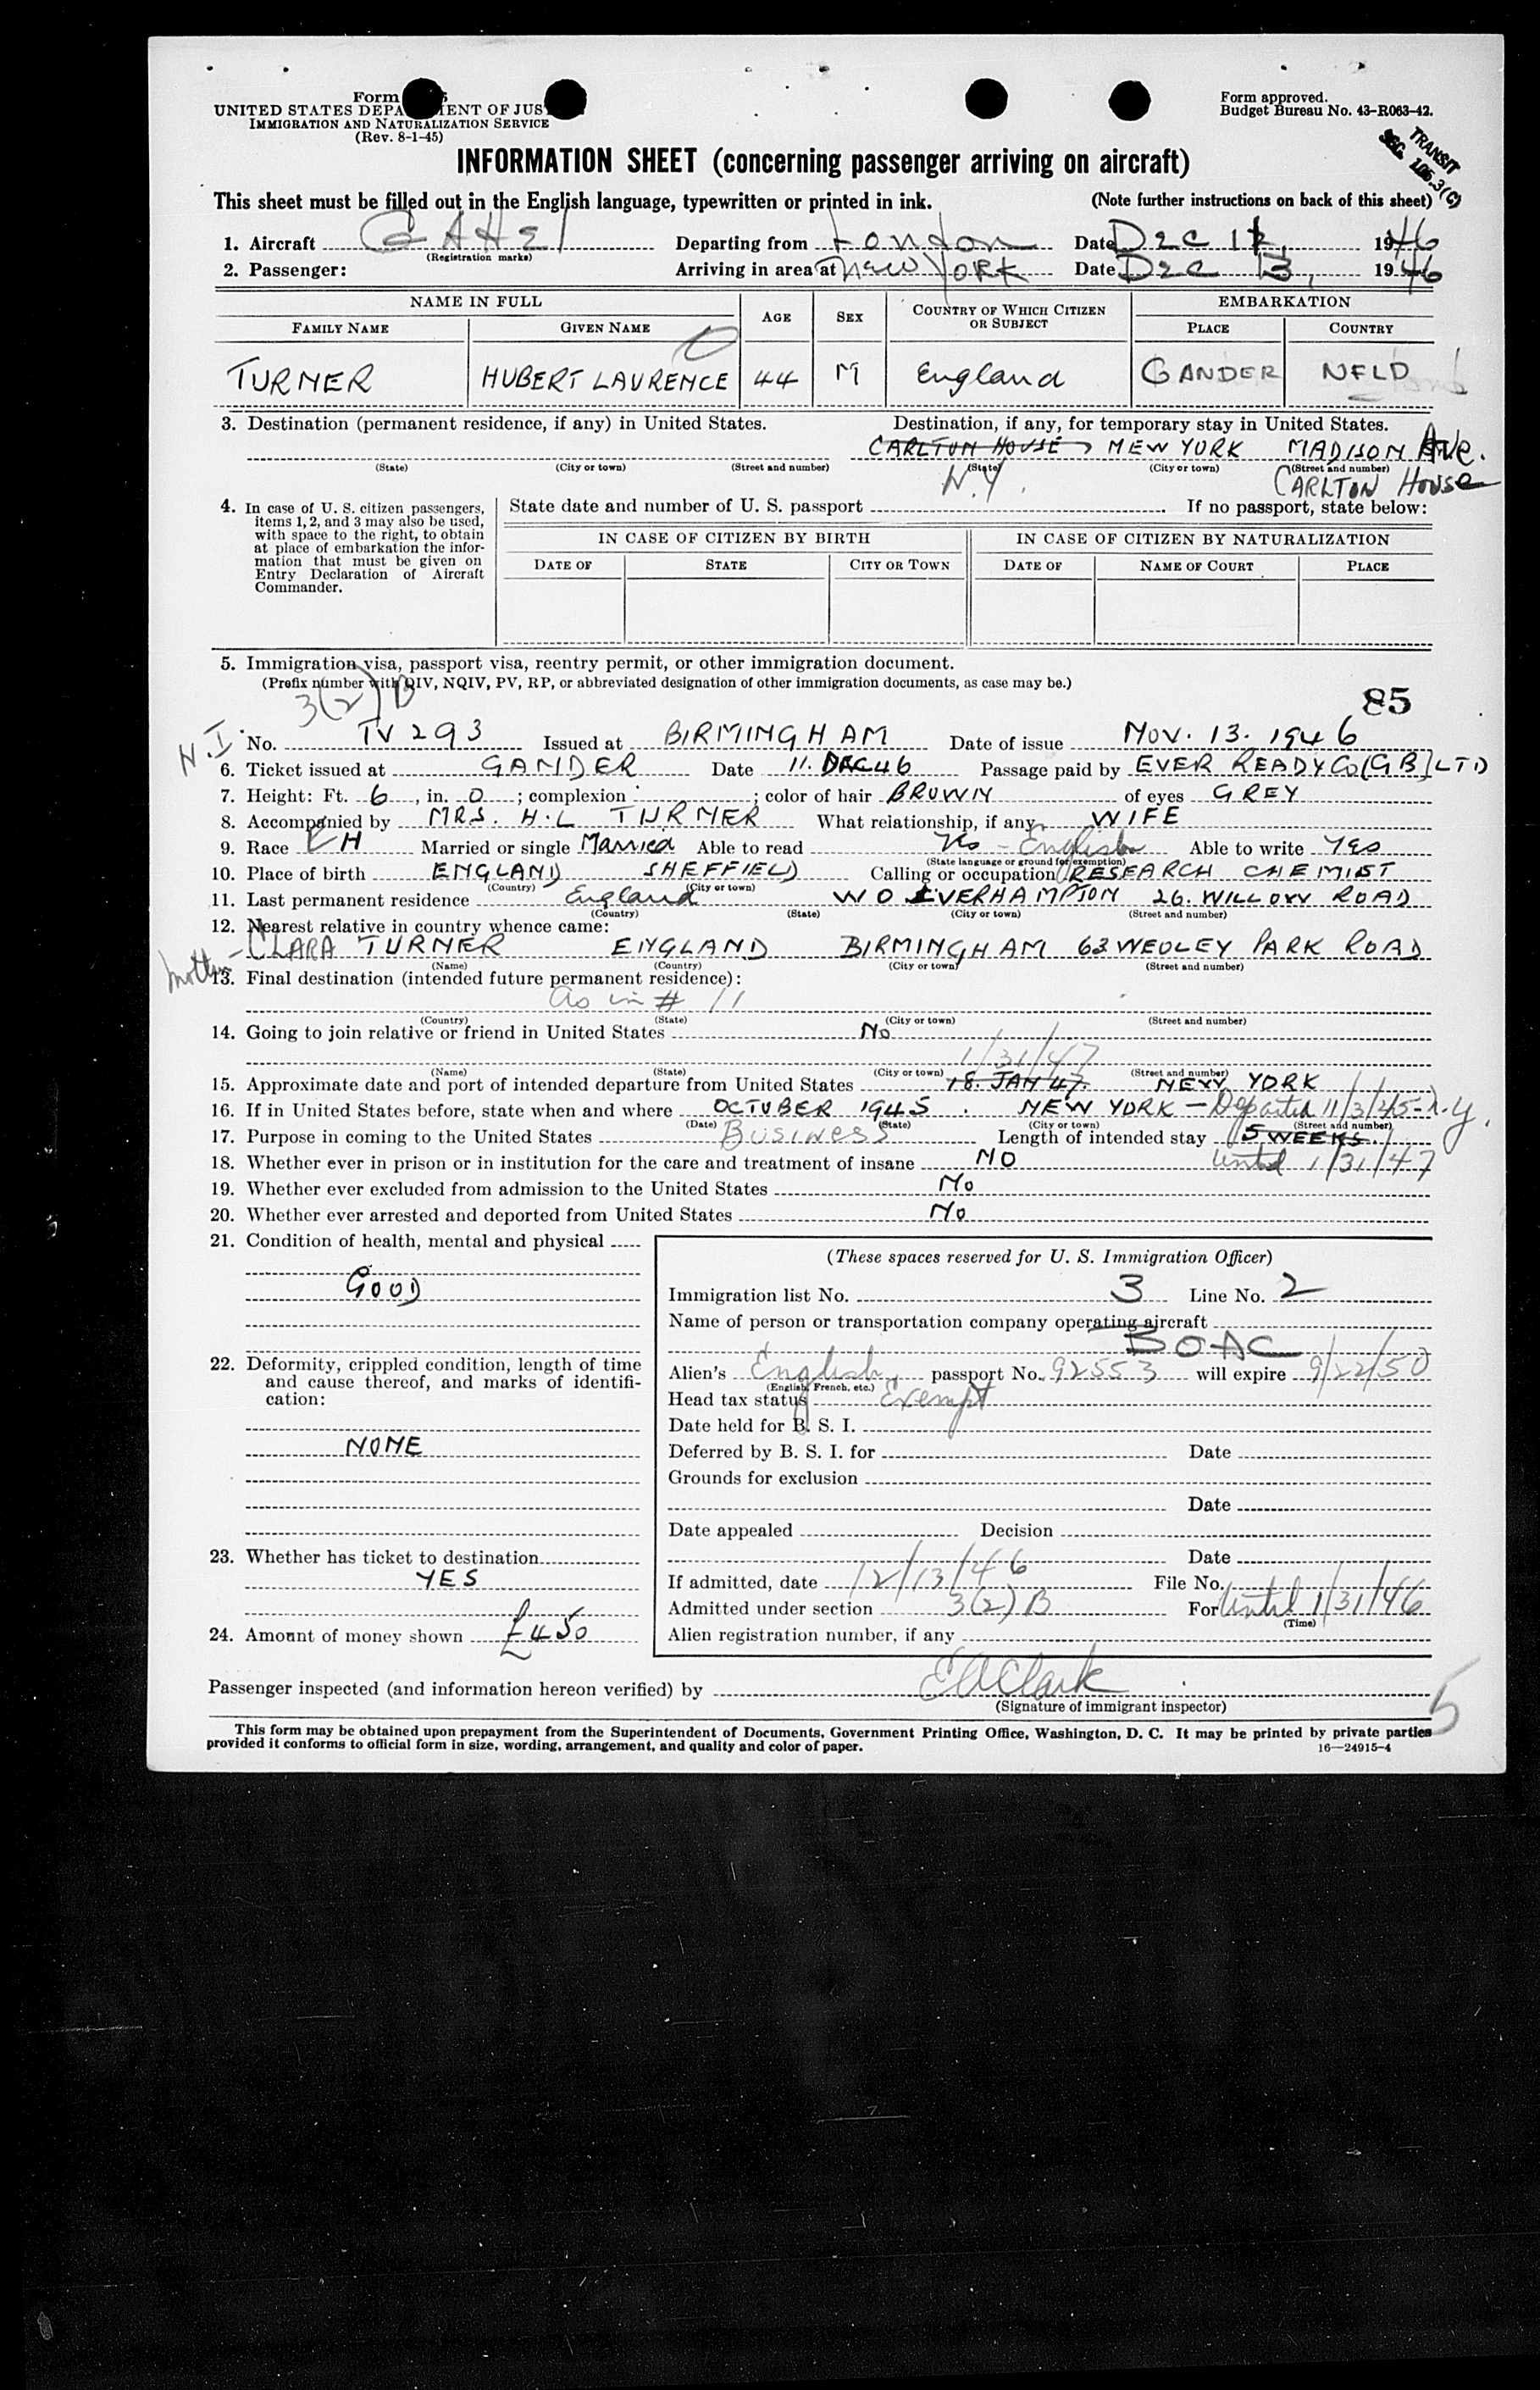 Form
UNITED STATES DEPA IENT OF JUS
IMMIGRATION AND NATURALIZATION SERVICE
(Rev. 8-1-45)
Form approved.
Budget Bureau No. 43-R063-42.
TRANSIT
SEC. 105.3(C)
INFORMATION SHEET (concerning passenger arriving on aircraft)
This sheet must be filled out in the English language, typewritten or printed in ink. (Note further instructions on back of this sheet)
1. Aircraft G AHE Departing from London Date Dec 12, 1946
(Registration marks)
2. Passenger: Arriving in area at New York Date Dec 13, 1946
NAME IN FULL AGE SEX COUNTRY OF WHICH CITIZEN OR SUBJECT EMBARKATION
FAMILY NAME GIVEN NAME PLACE COUNTRY
TURNER HUBERT LAURENCE 44 M England GANDER NFLD
3. Destination (permanent residence, if any) in United States. Destination, if any, for temporary stay in United States.
CARLTON HOUSE, NEW YORK MADISON AVE.
(State) (City or town) (Street and number) (State) (City or town) (Street and number)
N.Y. CARLTON HOUSE
4. In case of U. S. citizen passengers, items 1, 2, and 3 may also be used, with space to the right, to obtain at place of embarkation the information that must be given on Entry Declaration of Aircraft Commander.
State date and number of U. S. passport If no passport, state below:
IN CASE OF CITIZEN BY BIRTH IN CASE OF CITIZEN BY NATURALIZATION
DATE OF STATE CITY OR TOWN DATE OF NAME OF COURT PLACE
5. Immigration visa, passport visa, reentry permit, or other immigration document.
(Prefix number with QIV, NQIV, PV, RP, or abbreviated designation of other immigration documents, as case may be.)
3(2)B
85
N.I. No. TV 293 Issued at BIRMINGHAM Date of issue NOV. 13. 1946
6. Ticket issued at GANDER Date 11. DEC 46 Passage paid by EVER READY Co [GB] LTD
7. Height: Ft. 6, in. 0; complexion ; color of hair BROWN of eyes GREY
8. Accompanied by MRS. H.L TURNER What relationship, if any WIFE
9. Race H Married or single Married Able to read Yes - English Able to write Yes
(State language or ground for exemption)
10. Place of birth ENGLAND SHEFFIELD Calling or occupation RESEARCH CHEMIST
(Country) (City or town)
11. Last permanent residence England WOLVERHAMPTON 26. WILLOW ROAD
(Country) (State) (City or town) (Street and number)
12. Nearest relative in country whence came:
mother - CLARA TURNER ENGLAND BIRMINGHAM 63 WEOLEY PARK ROAD
(Name) (Country) (City or town) (Street and number)
13. Final destination (intended future permanent residence):
As in # 11
(Country) (State) (City or town) (Street and number)
14. Going to join relative or friend in United States No
1/31/47
(Name) (State) (City or town) (Street and number)
15. Approximate date and port of intended departure from United States 18 JAN 47. NEW YORK
16. If in United States before, state when and where OCTOBER 1945. NEW YORK - Departed 11/3/45 - N.Y.
(Date) (State) (City or town) (Street and number)
17. Purpose in coming to the United States BUSINESS Length of intended stay 5 WEEKS.
18. Whether ever in prison or in institution for the care and treatment of insane NO until 1/31/47
19. Whether ever excluded from admission to the United States No
20. Whether ever arrested and deported from United States No
21. Condition of health, mental and physical
GOOD
22. Deformity, crippled condition, length of time and cause thereof, and marks of identification:
NONE
23. Whether has ticket to destination
YES
24. Amount of money shown £450
(These spaces reserved for U. S. Immigration Officer)
Immigration list No. 3 Line No. 2
Name of person or transportation company operating aircraft
BOAC
Alien's English passport No. 92553 will expire 9/22/50
(English, French, etc.)
Head tax status Exempt
Date held for B. S. I.
Deferred by B. S. I. for Date
Grounds for exclusion
Date
Date appealed Decision
Date
If admitted, date 12/13/46 File No.
Admitted under section 3(2)B For Until 1/31/46
(Time)
Alien registration number, if any
Passenger inspected (and information hereon verified) by E A Clark
(Signature of immigrant inspector)
5
This form may be obtained upon prepayment from the Superintendent of Documents, Government Printing Office, Washington, D. C. It may be printed by private parties
provided it conforms to official form in size, wording, arrangement, and quality and color of paper. 16—24915-4